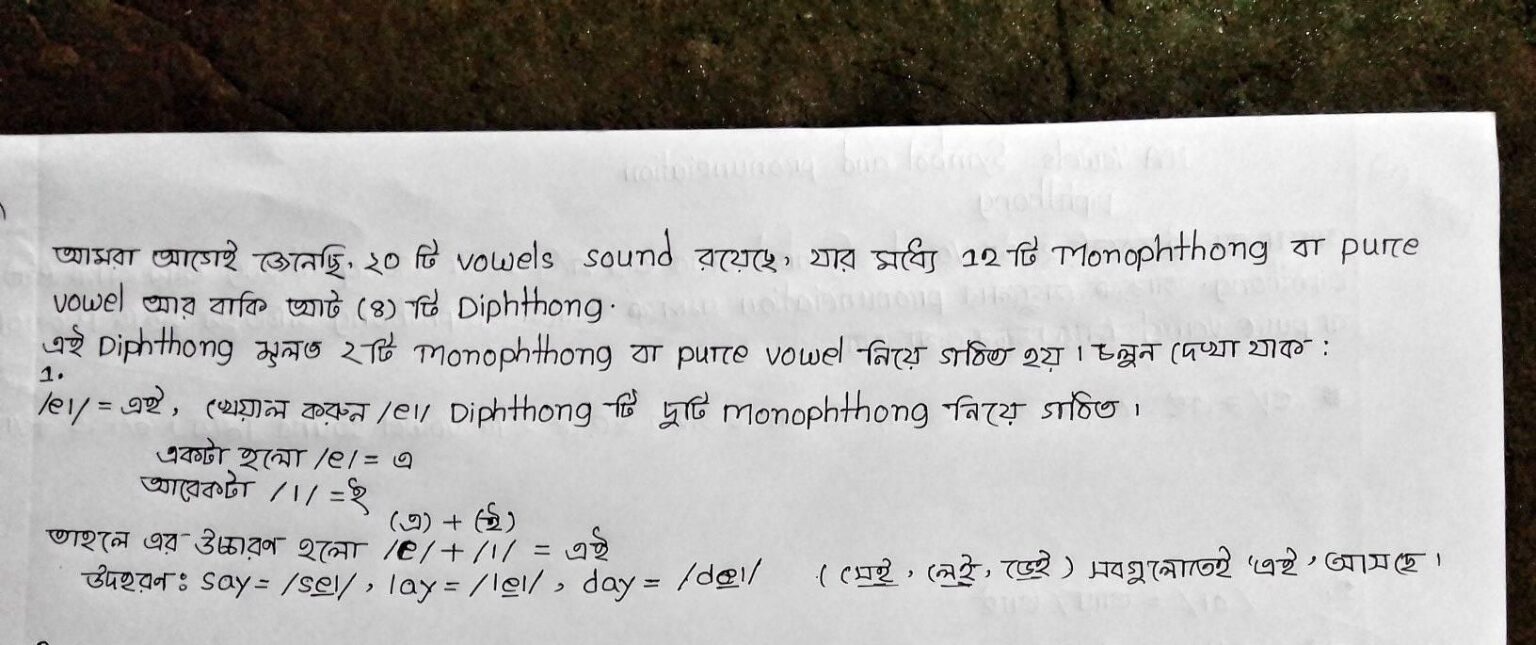 আমরা আগেই জেনেছি, ২০ টি vowels sound রয়েছে, যার মধ্যে 12 টি Monophthong বা pure
vowel আর বাকি আট (৪) টি Diphthong.
এই Diphthong মুলত ২টি monophthong বা pure vowel নিয়ে গঠিত হয়। চলুন দেখা যাক :
1.
/eɪ/ = এই, খেয়াল করুন /eɪ/ Diphthong টি দুটি monophthong নিয়ে গঠিত।
একটা হলো /e/ = এ
আরেকটা /ɪ/ = ই
(এ) + (ই)
তাহলে এর উচ্চারণ হলো /e/ + /ɪ/ = এই
উদহরন : say = /seɪ/, lay = /leɪ/, day = /deɪ/ (সেই, লেই, ডেই) সবগুলোতেই 'এই' আসছে।